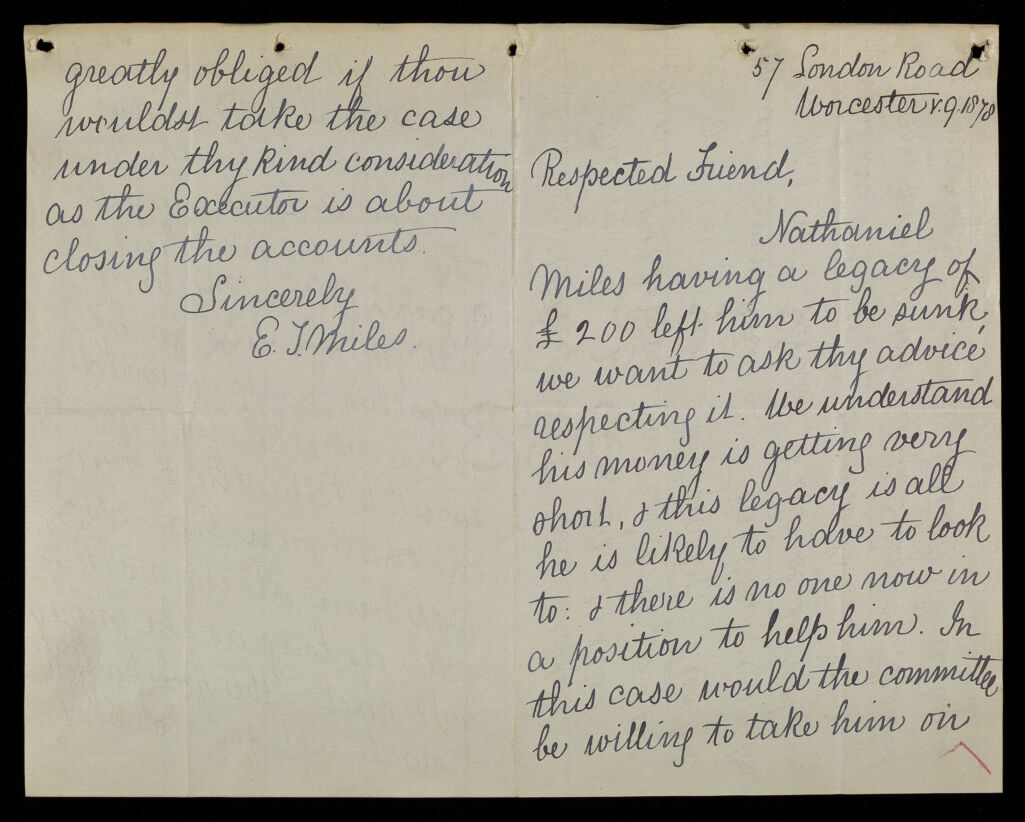 57 London Road
Worcester v.9.1878
Respected Friend,
Nathaniel
Miles having a legacy of
£200 left him to be sunk,
we want to ask thy advice
respecting it. We understand
his money is getting very
short, & this legacy is all
he is likely to have to look
to: & there is no one now in
a position to help him. In
this case would the committee
be willing to take him on
greatly obliged if thou
wouldst take the case
under thy kind consideration
as the Executor is about
closing the accounts.
Sincerely
E. T. Miles.